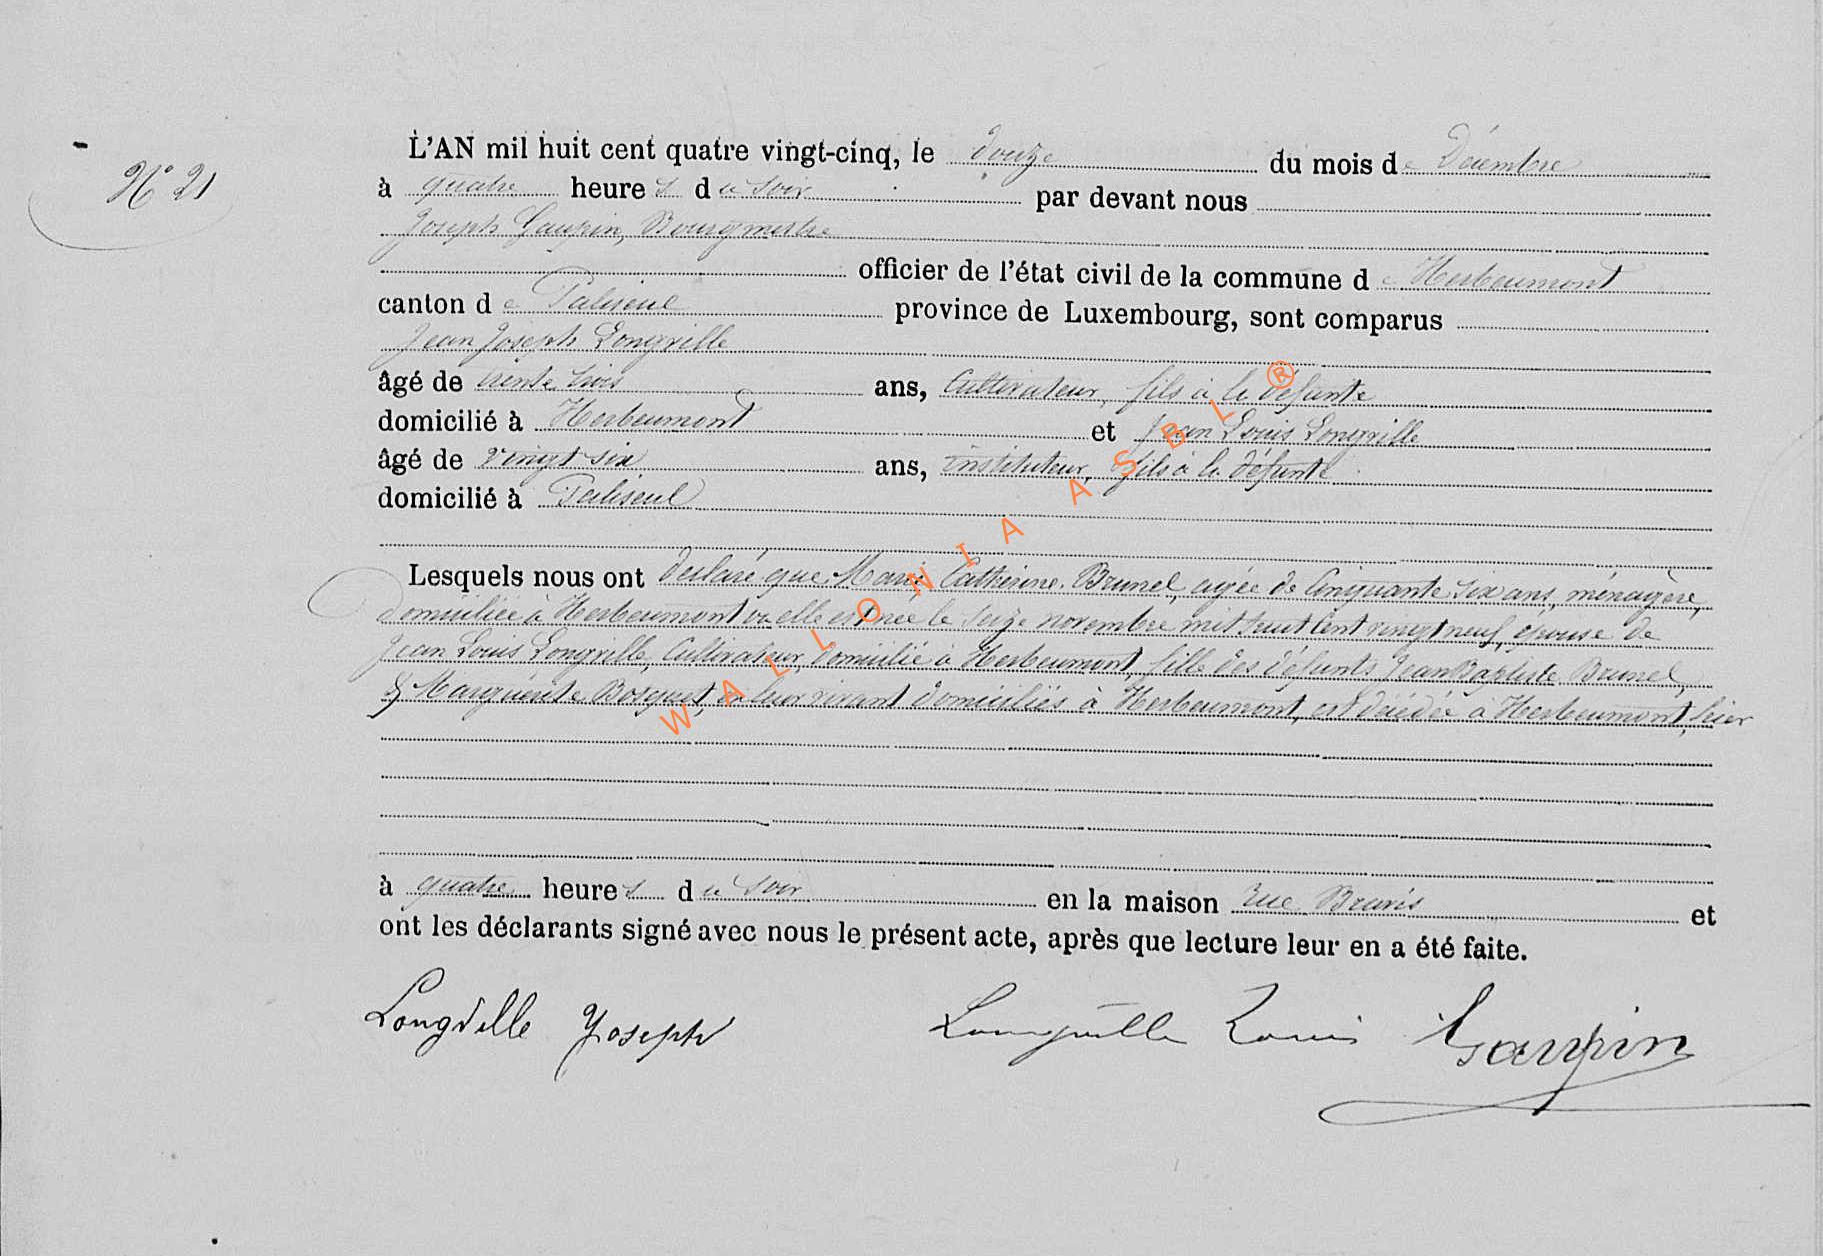 N° 21
L'AN mil huit cent quatre vingt-cinq, le douze du mois de Décembre
à quatre heures du soir par devant nous
Joseph Gaupin, Bourgmestre
officier de l'état civil de la commune de Herbeumont
canton de Paliseul province de Luxembourg, sont comparus
Jean Joseph Longville
âgé de trente trois ans, Cultivateur, fils à la défunte
domicilié à Herbeumont et Jean Louis Longville
âgé de vingt six ans, instituteur, fils à la défunte
domicilié à Paliseul
Lesquels nous ont déclaré que Marie Catherine Brunel, agée de Cinquante Six ans, ménagère,
domiciliée à Herbeumont où elle est née le seize novembre mil huit cent vingt neuf, épouse de
Jean Louis Longville, Cultivateur, domicilié à Herbeumont, fille des défunts Jean Baptiste Brunel,
& Marguerite Bosquet, en leur vivant domiciliés à Herbeumont, est décédée à Herbeumont, hier
à quatre heures du soir en la maison rue et
ont les déclarants signé avec nous le présent acte, après que lecture leur en a été faite.
Longville Joseph Longville Louis Gaupin
WALLONIA ASBL ®